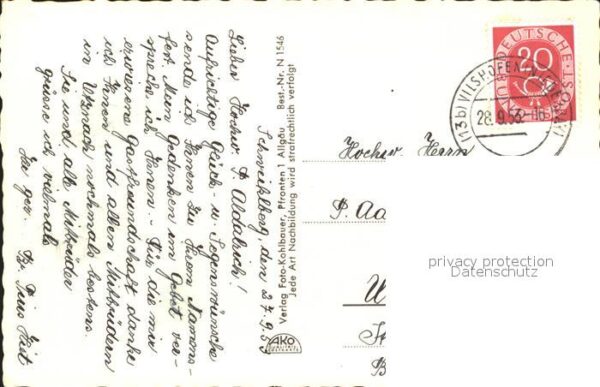 Schweiklberg, den 27.9.53
Lieber Hochw. P. Aldabrich!
Aufrichtige Glück- u. Segenswünsche
sende ich Ihnen zu Ihrem Namens-
fest. Mein Gedenken im Gebet ver-
spreche ich Ihnen. - Für die mir
erwiesene Gastfreundschaft danke
ich Ihnen und allen Mitbrüdern
in Uznach nochmals bestens.
Sie und alle Mitbrüder
grüsse ich vielmals
Ihr ger. Br. Pius
Verlag Foto-Kohlbauer, Pfronten 1 Allgäu Best.-Nr. N 1546
Jede Art Nachbildung wird strafrechtlich verfolgt
AKO
DEUTSCHE POST
20
(13b) VILSHOFEN
28.9.53
Hochw. Herrn
P.
U
privacy protection
Datenschutz